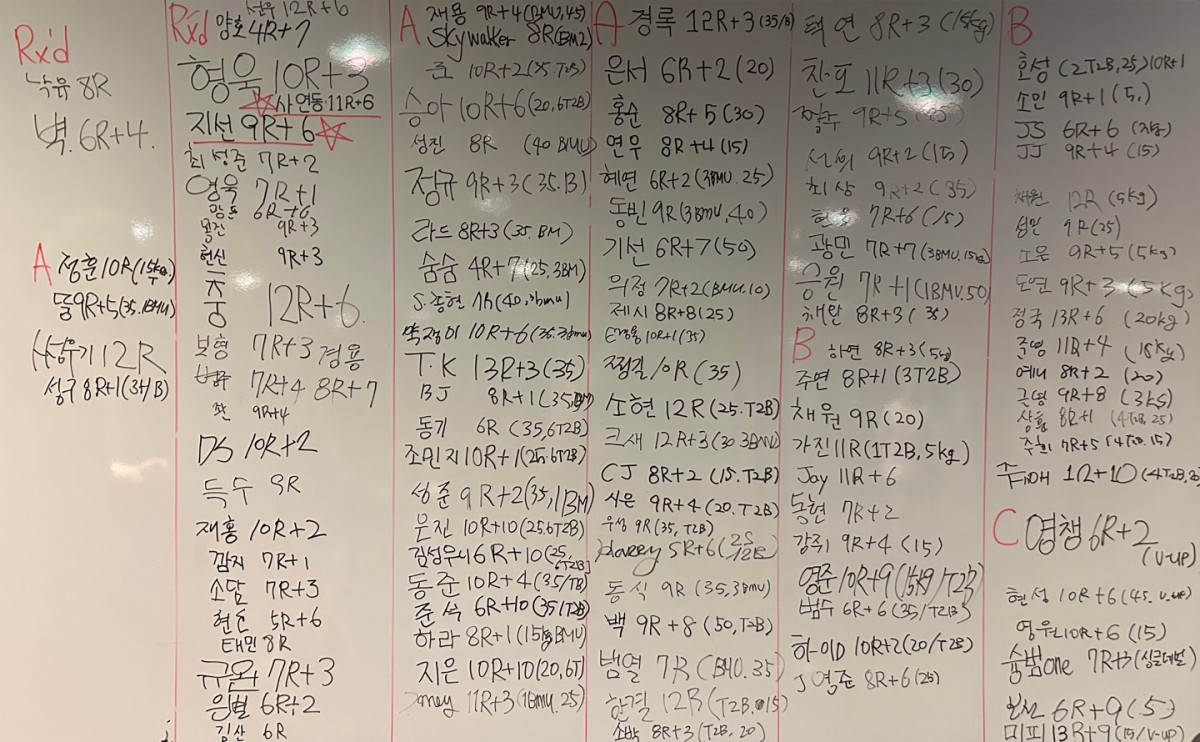 Rx'd
낙유 8R
벽. 6R+4.
A 정훈 10R(15kg.)
똘 9R+5(35.1BMU)
12R
성구 8R+1(35/1B)
Rx'd 12R+6
양호 4R+7
형욱 10R+3
사연동 11R+6
지선 9R+6
최성준 7R+2
영욱 7R+1
6R+6
9R+3
현산 9R+3
쭝 12R+6.
보형 7R+3 경용
7R+4 8R+7
짠 9R+4
DS 10R+2
득수 9R
재홍 10R+2
깜지 7R+1
소담 7R+3
5R+6
태민 8R
규원 7R+3
응별 6R+2
김산 6R
A 재용 9R+4(BMU,45)
Skywalker 8R(BM2)
쿤 10R+2(35.T2B)
승아 10R+6(20,6T2B)
성진 8R (40 BMU)
정규 9R+3(35.B)
라드 8R+3(35.BM)
숨숨 4R+7(25.3BM)
S.종현 7R(40.3bmu)
10R+6(35.3bmu)
T.K 13R+3(35)
BJ 8R+1(35,BM)
동기 6R (35,6T2B)
조민지 10R+1(25.6T2B)
성준 9R+2(35,1BM)
은진 10R+10(25.6T2B)
김성우니 6R+10(25,6T2B)
동준 10R+4(35/TB)
준석 6R+10(35/T2B)
하라 8R+1(15kg BMU)
지은 10R+10(20,6T)
11R+3(1BMU.25)
A 경록 12R+3(35/B)
은서 6R+2(20)
홍순 8R+5(30)
연우 8R+4(15)
혜연 6R+2(3BMU.25)
동빈 9R(3BMU,40)
기선 6R+7(50)
의정 7R+2(BMU.10)
제시 8R+8(25)
10R+1(35)
쩡결 10R(35)
소현 12R(25.T2B)
크새 12R+3(30.3BMU)
CJ 8R+2(15.T2B)
시은 9R+4(20.T2B)
우성 9R(35,T2B)
Harry 5R+6(25/T2B)
동식 9R(35,3BMU)
백 9R+8(50,T2B)
범열 7R(BMU.35)
한결 12R(T2B.15)
소박 8R+3(T2B,20)
택연 8R+3(15kg)
찬포 11R+3(30)
9R+5
9R+2(15)
최상 9R+2(35)
현용 7R+6(15)
광민 7R+7(3BMU,15kg)
응원 7R+1(1BMU.50)
채완 8R+3(35)
B 하연 8R+3(5kg)
주연 8R+1(3T2B)
채원 9R(20)
가진 11R(1T2B,5kg)
Jay 11R+6
동현 7R+2
강쥐 9R+4(15)
영준 10R+9(15kg/T2B)
범수 6R+6(35/T2B)
하이D 10R+2(20/T2B)
J영준 8R+6(25)
B
효성 (2T2B,25)10R+1
소민 9R+1(5)
JS 6R+6
JJ 9R+4(15)
채원 12R(5kg)
섬민 9R(25)
소은 9R+5(5kg)
도연 9R+3(5kg)
정국 13R+6(20kg)
준영 11R+4(15kg)
예니 8R+2(20)
근영 9R+8(3kg)
상훈 8R+1(4T2B,25)
주희 7R+5(4T2B.15)
12R+10(4T2B,20)
C 영챙 6R+2(V-up)
현성 10R+6(45.v-up)
영우 10R+6(15)
숨범one 7R+3(싱글데벌)
6R+9(.5)
미피 13R+9(15/V-up)